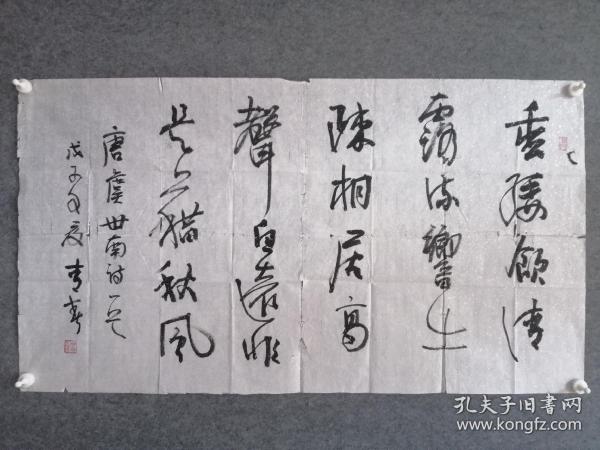 垂緌飲清
露流響出
疎桐居高
聲自遠非
是藉秋風
唐虞世南詩一首
戊子年夏
孔夫子旧书网
www.kongfz.com